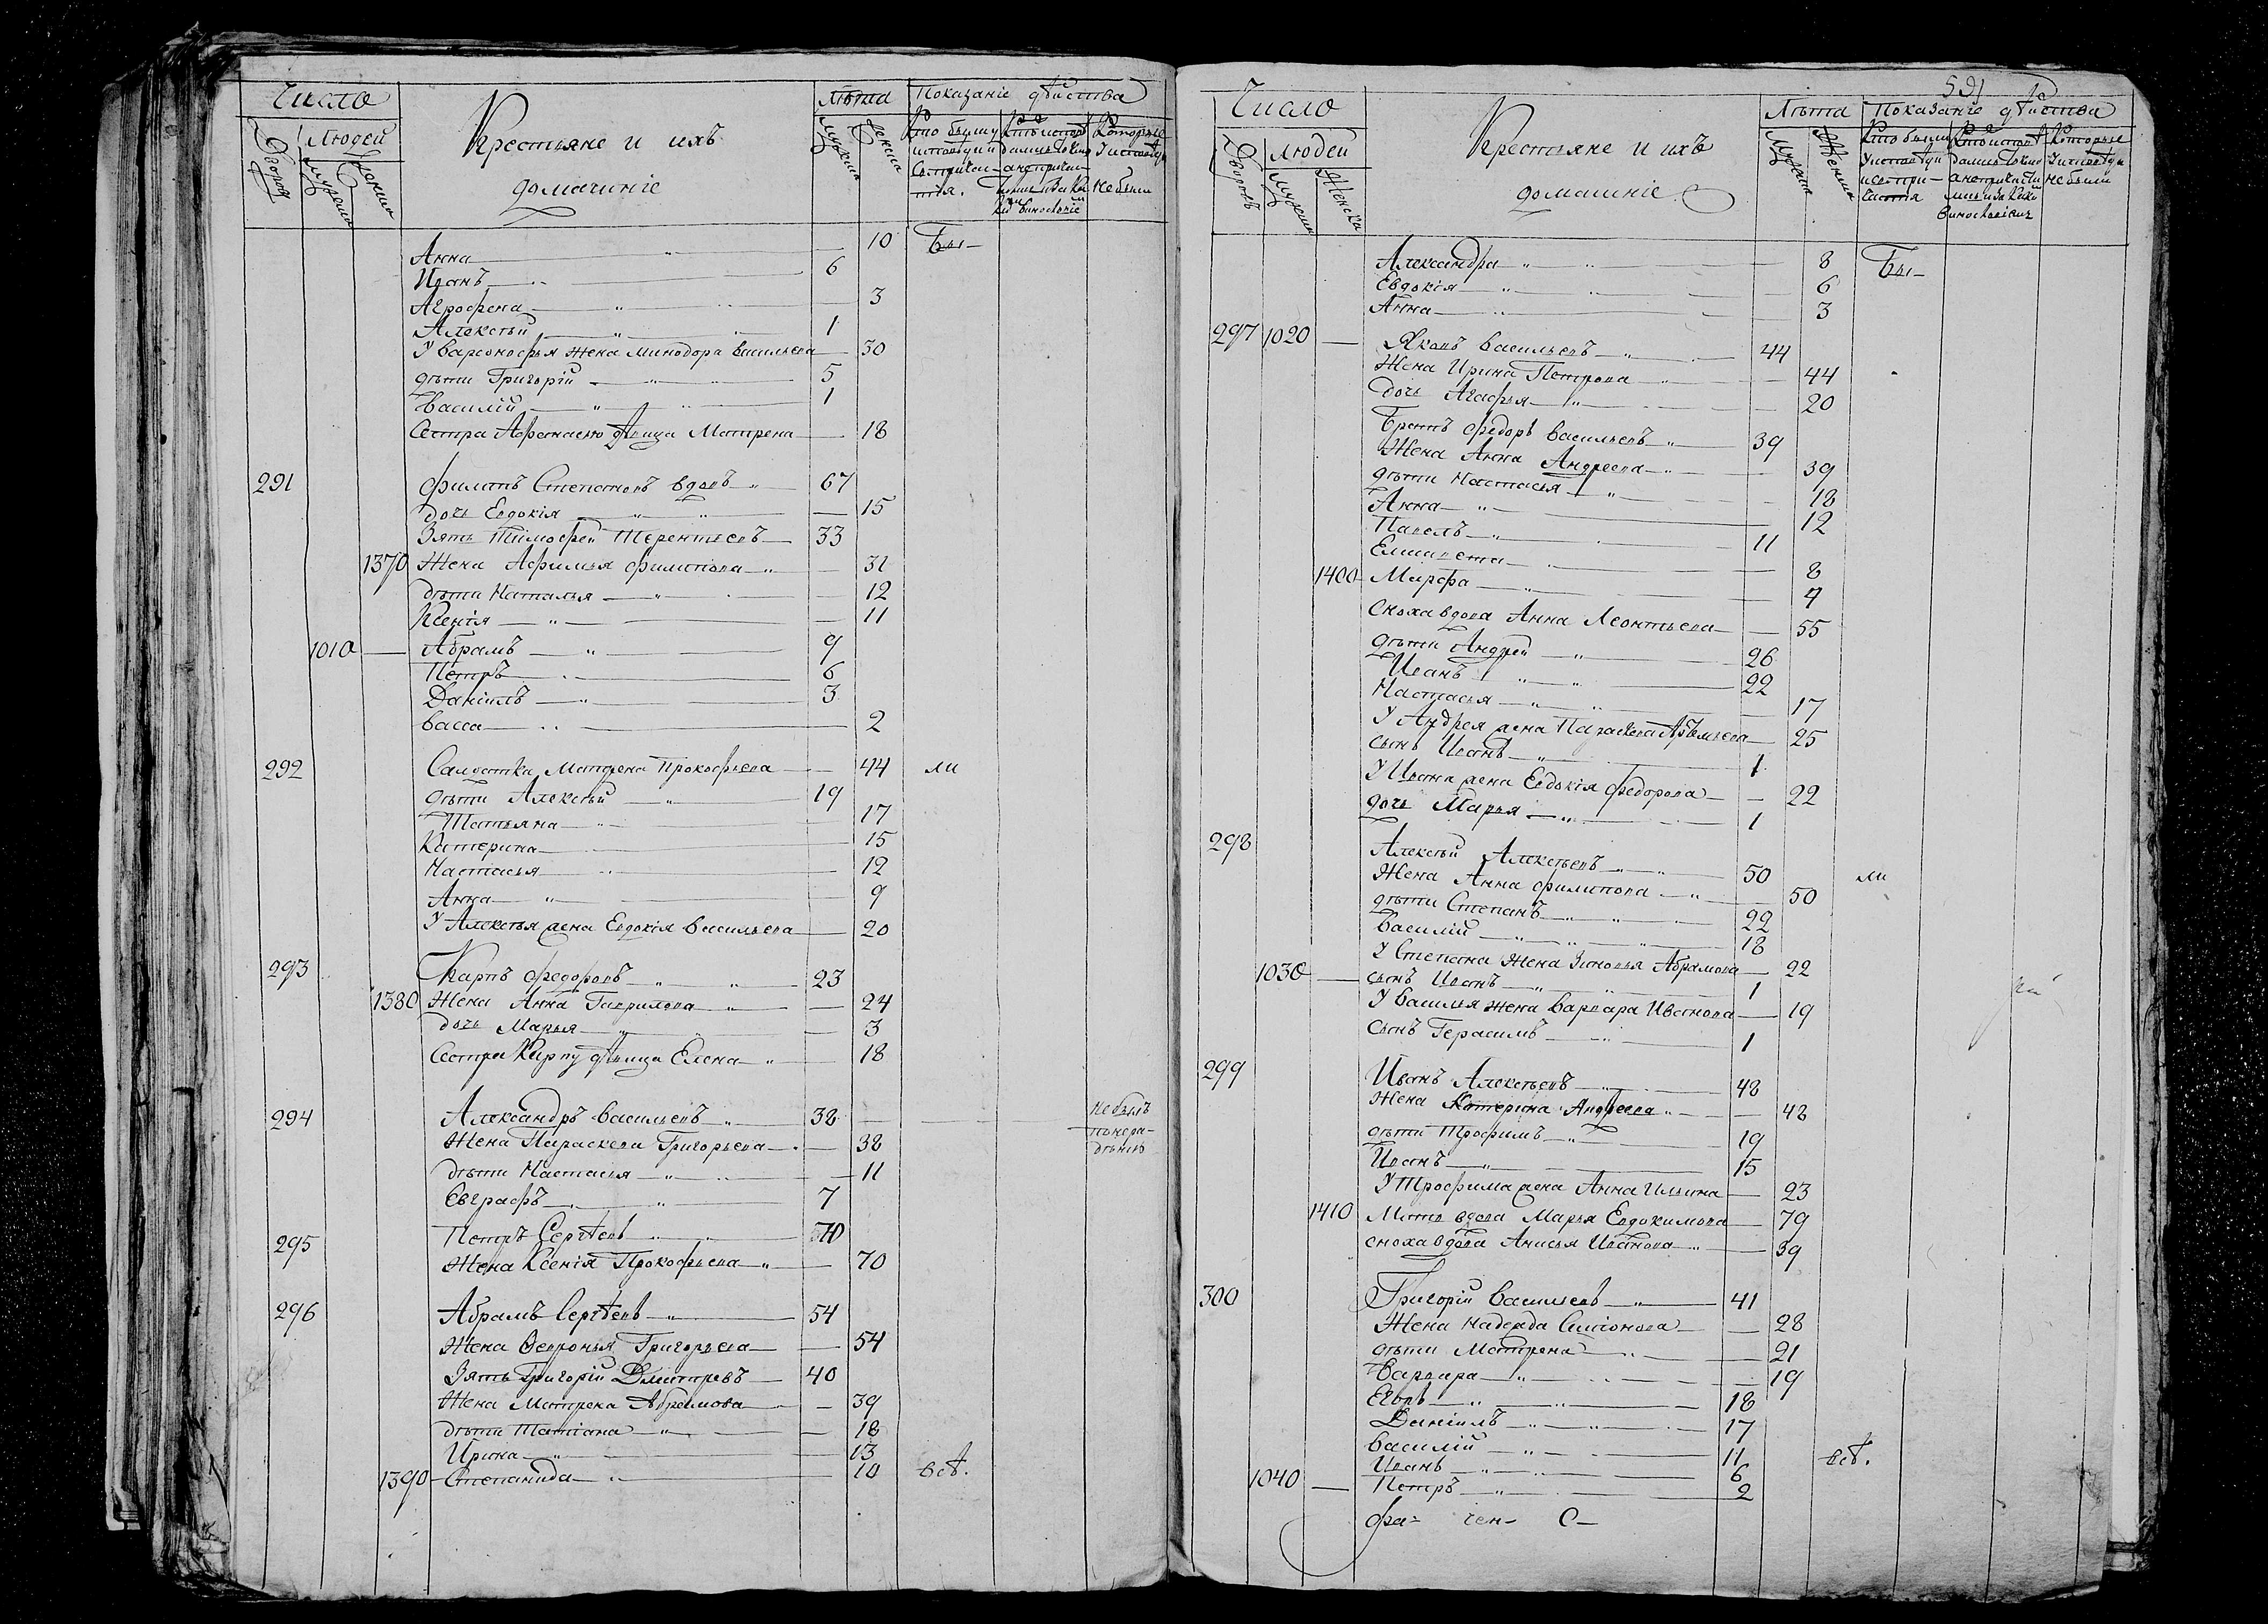 Число
Людей
Дворов
Мужеска
Женска
Крестьяне и ихъ
домашніе
Лѣта
Мужска
Женска
Показаніе дѣйства
Кто былъ у
исповѣди и
Св. причас-
тія.
Которые
у исповѣди
не были
Анна 10 Бы-
Иванъ 6
Агрофена 3
Алексѣй 1
У Варсонофья жена Минодора Васильева 30
дѣти Григорій 5
Василій 1
Сестра Афонасью дѣвица Матрена 18
291 Филипъ Степановъ вдовъ 67
дочь Евдокія 15
Зять Тимофей Терентьевъ 33
1370 Жена Афимья Филипова 31
дѣти Наталья 12
Ксенія 11
1010 Абрамъ 9
Петръ 6
Даніилъ 3
Васса 2
292 Салдатка Матрена Прокофьева 44 ли
дѣти Алексѣй 19
Татьяна 17
Катерина 15
Настасья 12
Анна 9
У Алексѣя жена Евдокія Васильева 20
293 Карпъ Федоровъ 23
1380 Жена Анна Гаврилова 24
дочь Марья 3
Сестра Карпу дѣвица Елена 18
294 Александръ Васильевъ 38 не былъ
по нера-
дѣнію
Жена Параскева Григорьева 38
дѣти Настасья 11
Евграфъ 7
295 Петръ Сергѣевъ 70
Жена Ксенія Прокофьева 70
296 Абрамъ Сергѣевъ 54
Жена Февронья Григорьева 54
Зять Григорій Дмитревъ 40
Жена Матрена Абрамова 39
дѣти Татіана 18
Ирина 13
1390 Степанида 10 всѣ.
591
Число
Людей
Дворовъ
Мужеска
Женска
Крестьяне и ихъ
домашніе
Лѣта
Мужска
Женска
Показаніе дѣйства
Кто былъ
у исповѣди
и св. при-
частія
Которые
у исповѣди
не были
Александра 8 Бы-
Евдокія 6
Анна 3
297 1020 Яковъ Васильевъ 44
Жена Ирина Петрова 44
дочь Агафья 20
Братъ Федоръ Васильевъ 39
Жена Анна Андреева 39
дѣти Настасья 18
Анна 12
Павелъ 11
Елисавета 8
1400 Марфа 4
Сноха вдова Анна Леонтьева 55
дѣти Андрей 26
Иванъ 22
Настасья 17
У Андрея жена Параскева Артемьева 25
сынъ Иванъ 1
У Ивана жена Евдокія Федорова 22
дочь Марья 1
298 Алексѣй Алексѣевъ 50 ли
Жена Анна Филипова 50
дѣти Степанъ 22
Василій 18
У Степана жена Зиновья Абрамова 22
1030 сынъ Иванъ 1
У Василья жена Варвара Иванова 19
сынъ Герасимъ 1
299 Иванъ Алексѣевъ 48
Жена Катерина Андреева 48
дѣти Трофимъ 19
Иванъ 15
У Трофима жена Анна Ильина 23
1410 Мать вдова Марья Евдокимова 79
сноха вдова Анисья Иванова 39
300 Григорій Васильевъ 41
Жена Надежда Симіонова 28
дѣти Матрена 21
Варвара 19
Егоръ 18
Даніилъ 17
Василій 11 всѣ.
Иванъ 6
1040 Петръ 2